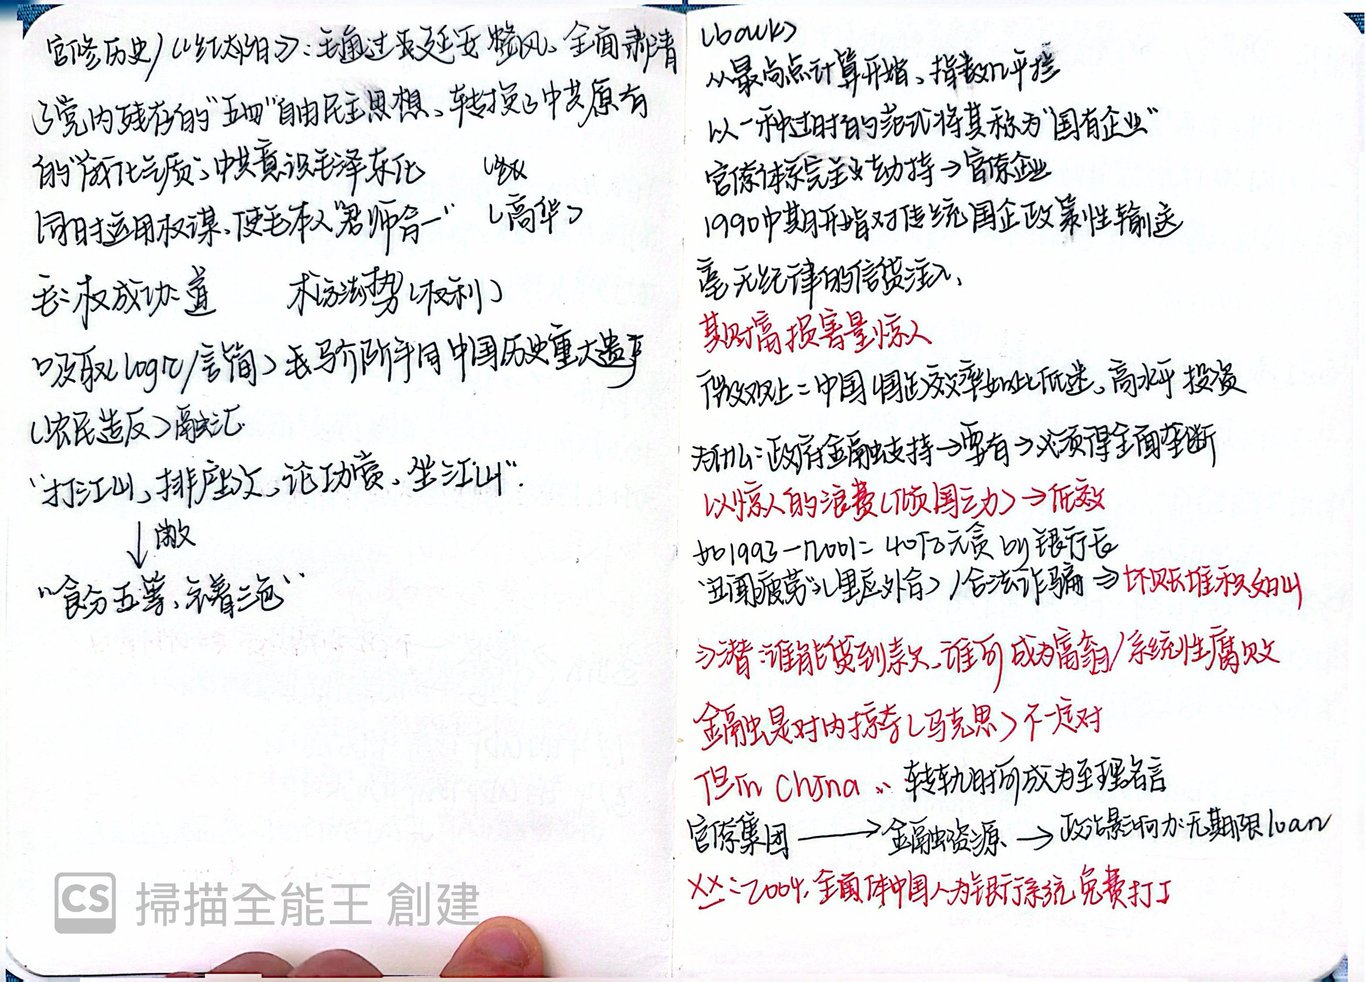 官修历史/《红太阳》：毛通过发延安整风、全面肃清
了党内残存的“五四”自由民主思想、转换了中共原有
的“俄化气质”、中共意识毛泽东化
同时运用权谋、使毛本人“君师合一” （高华）
毛：权成功：道 术法势（权利）
吸取（logic/言简）毛马介阶斗同中国历史重大遗产
（农民造反）融汇
“打江山、排座次、论功赏、坐江山”.
↓
“食分五等、衣着三色”
（bank）
从最高点计算开始、指数几乎挫
以一种过时的范式将其称为“国有企业”
官僚体系完全劫持→官僚企业
1990中期开始对传统国企政策性输送
毫无纪律的信贷注入、
其财富损害量惊人
微观上：中国（国企）效率如此低迷、高水平投资
为什么：政府金融支持→要有→必须得全面垄断
以惊人的浪费（倾国之力）→低效
如1993—2001：40万元贪by银行长
“丑闻疲劳”（里应外合）/合法诈骗⇒坏账堆积如山
⇒潜：谁能贷到款、谁可成为富翁/系统性腐败
金融是对内掠夺（马克思）不一定对
但in China .. 转轨时可成为至理名言
官僚集团→金融资源→政治影响力无期限loan
XX：2004、全体中国人为银行系统免费打工
掃描全能王 創建
CS